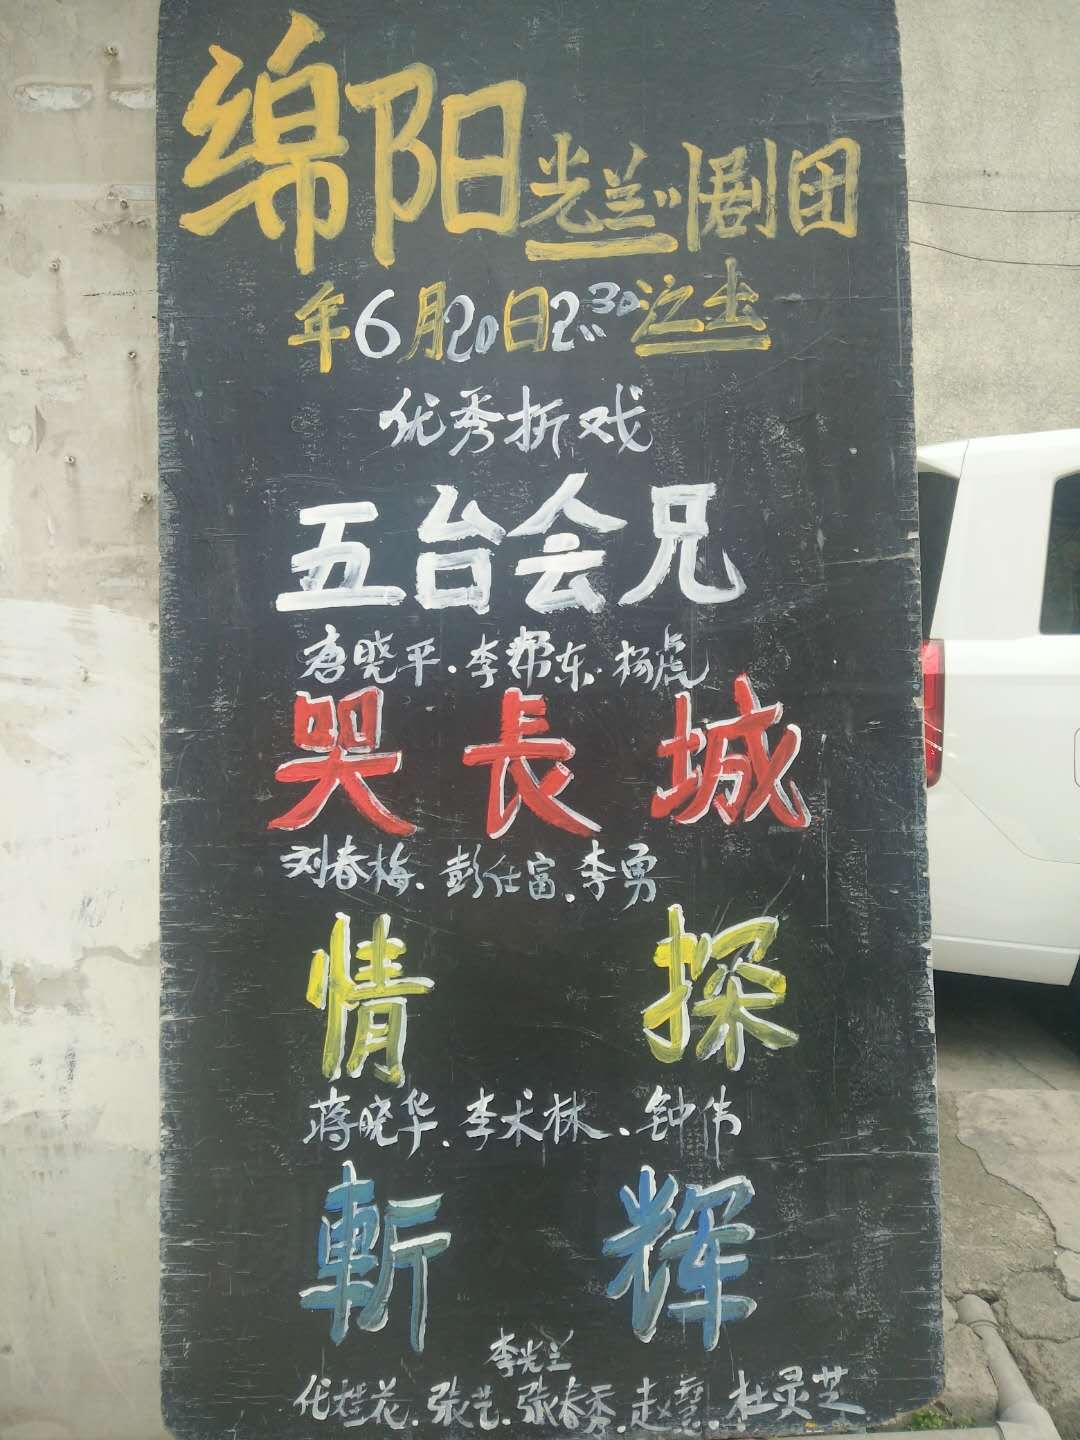 绵阳光兰川剧团
年6月20日2:30演出
优秀折戏
五台会兄
唐晓平.李帮东.杨虎
哭長城
刘春梅.彭仕富.李勇
情探
蒋晓华.李术林.钟伟
斬辉
李光兰
代桂花.张艺.张春秀.赵霞.杜灵芝